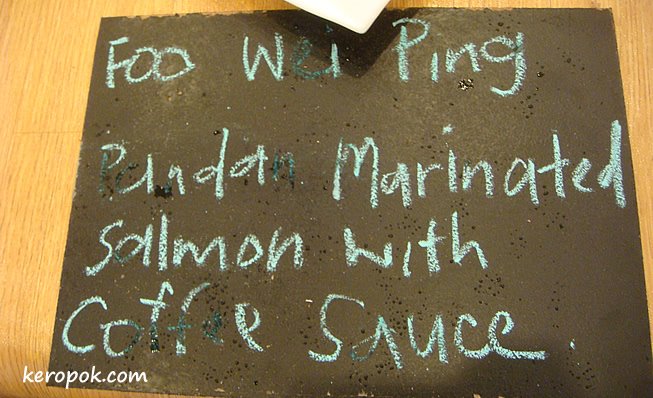 Foo Wei Ping
Pandan Marinated
Salmon with
Coffee Sauce.
keropok.com